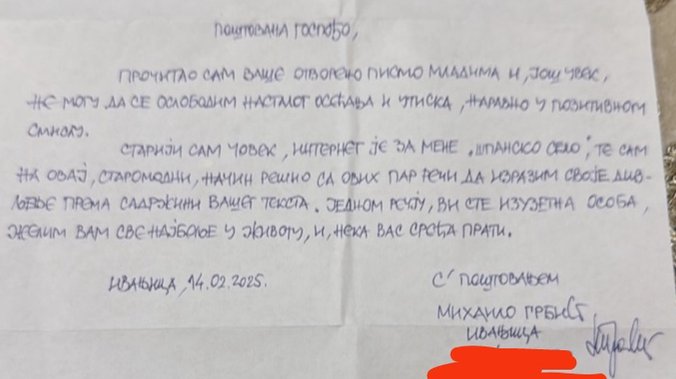 ПОШТОВАНА ГОСПОЂО,
ПРОЧИТАО САМ ВАШЕ ОТВОРЕНО ПИСМО МЛАДИМА И, ЈОШ УВЕК,
НЕ МОГУ ДА СЕ ОСЛОБОДИМ НАСТАЛОГ ОСЕЋАЊА И УТИСКА, НАРАВНО У ПОЗИТИВНОМ
СМИСЛУ.
СТАРИЈИ САМ ЧОВЕК, ИНТЕРНЕТ ЈЕ ЗА МЕНЕ „ШПАНСКО СЕЛО", ТЕ САМ
НА ОВАЈ, СТАРОМОДНИ, НАЧИН РЕШИО СА ОВИХ ПАР РЕЧИ ДА ИЗРАЗИМ СВОЈЕ ДИВ-
ЉЕЊЕ ПРЕМА САДРЖИНИ ВАШЕГ ТЕКСТА. ЈЕДНОМ РЕЧЈУ, ВИ СТЕ ИЗУЗЕТНА ОСОБА,
ЖЕЛИМ ВАМ СВЕ НАЈБОЉЕ У ЖИВОТУ, И, НЕКА ВАС СРЕЋА ПРАТИ.
ИВАЊИЦА, 14.02.2025.
С' ПОШТОВАЊЕМ
МИХАИЛО
ИВАЊИЦА